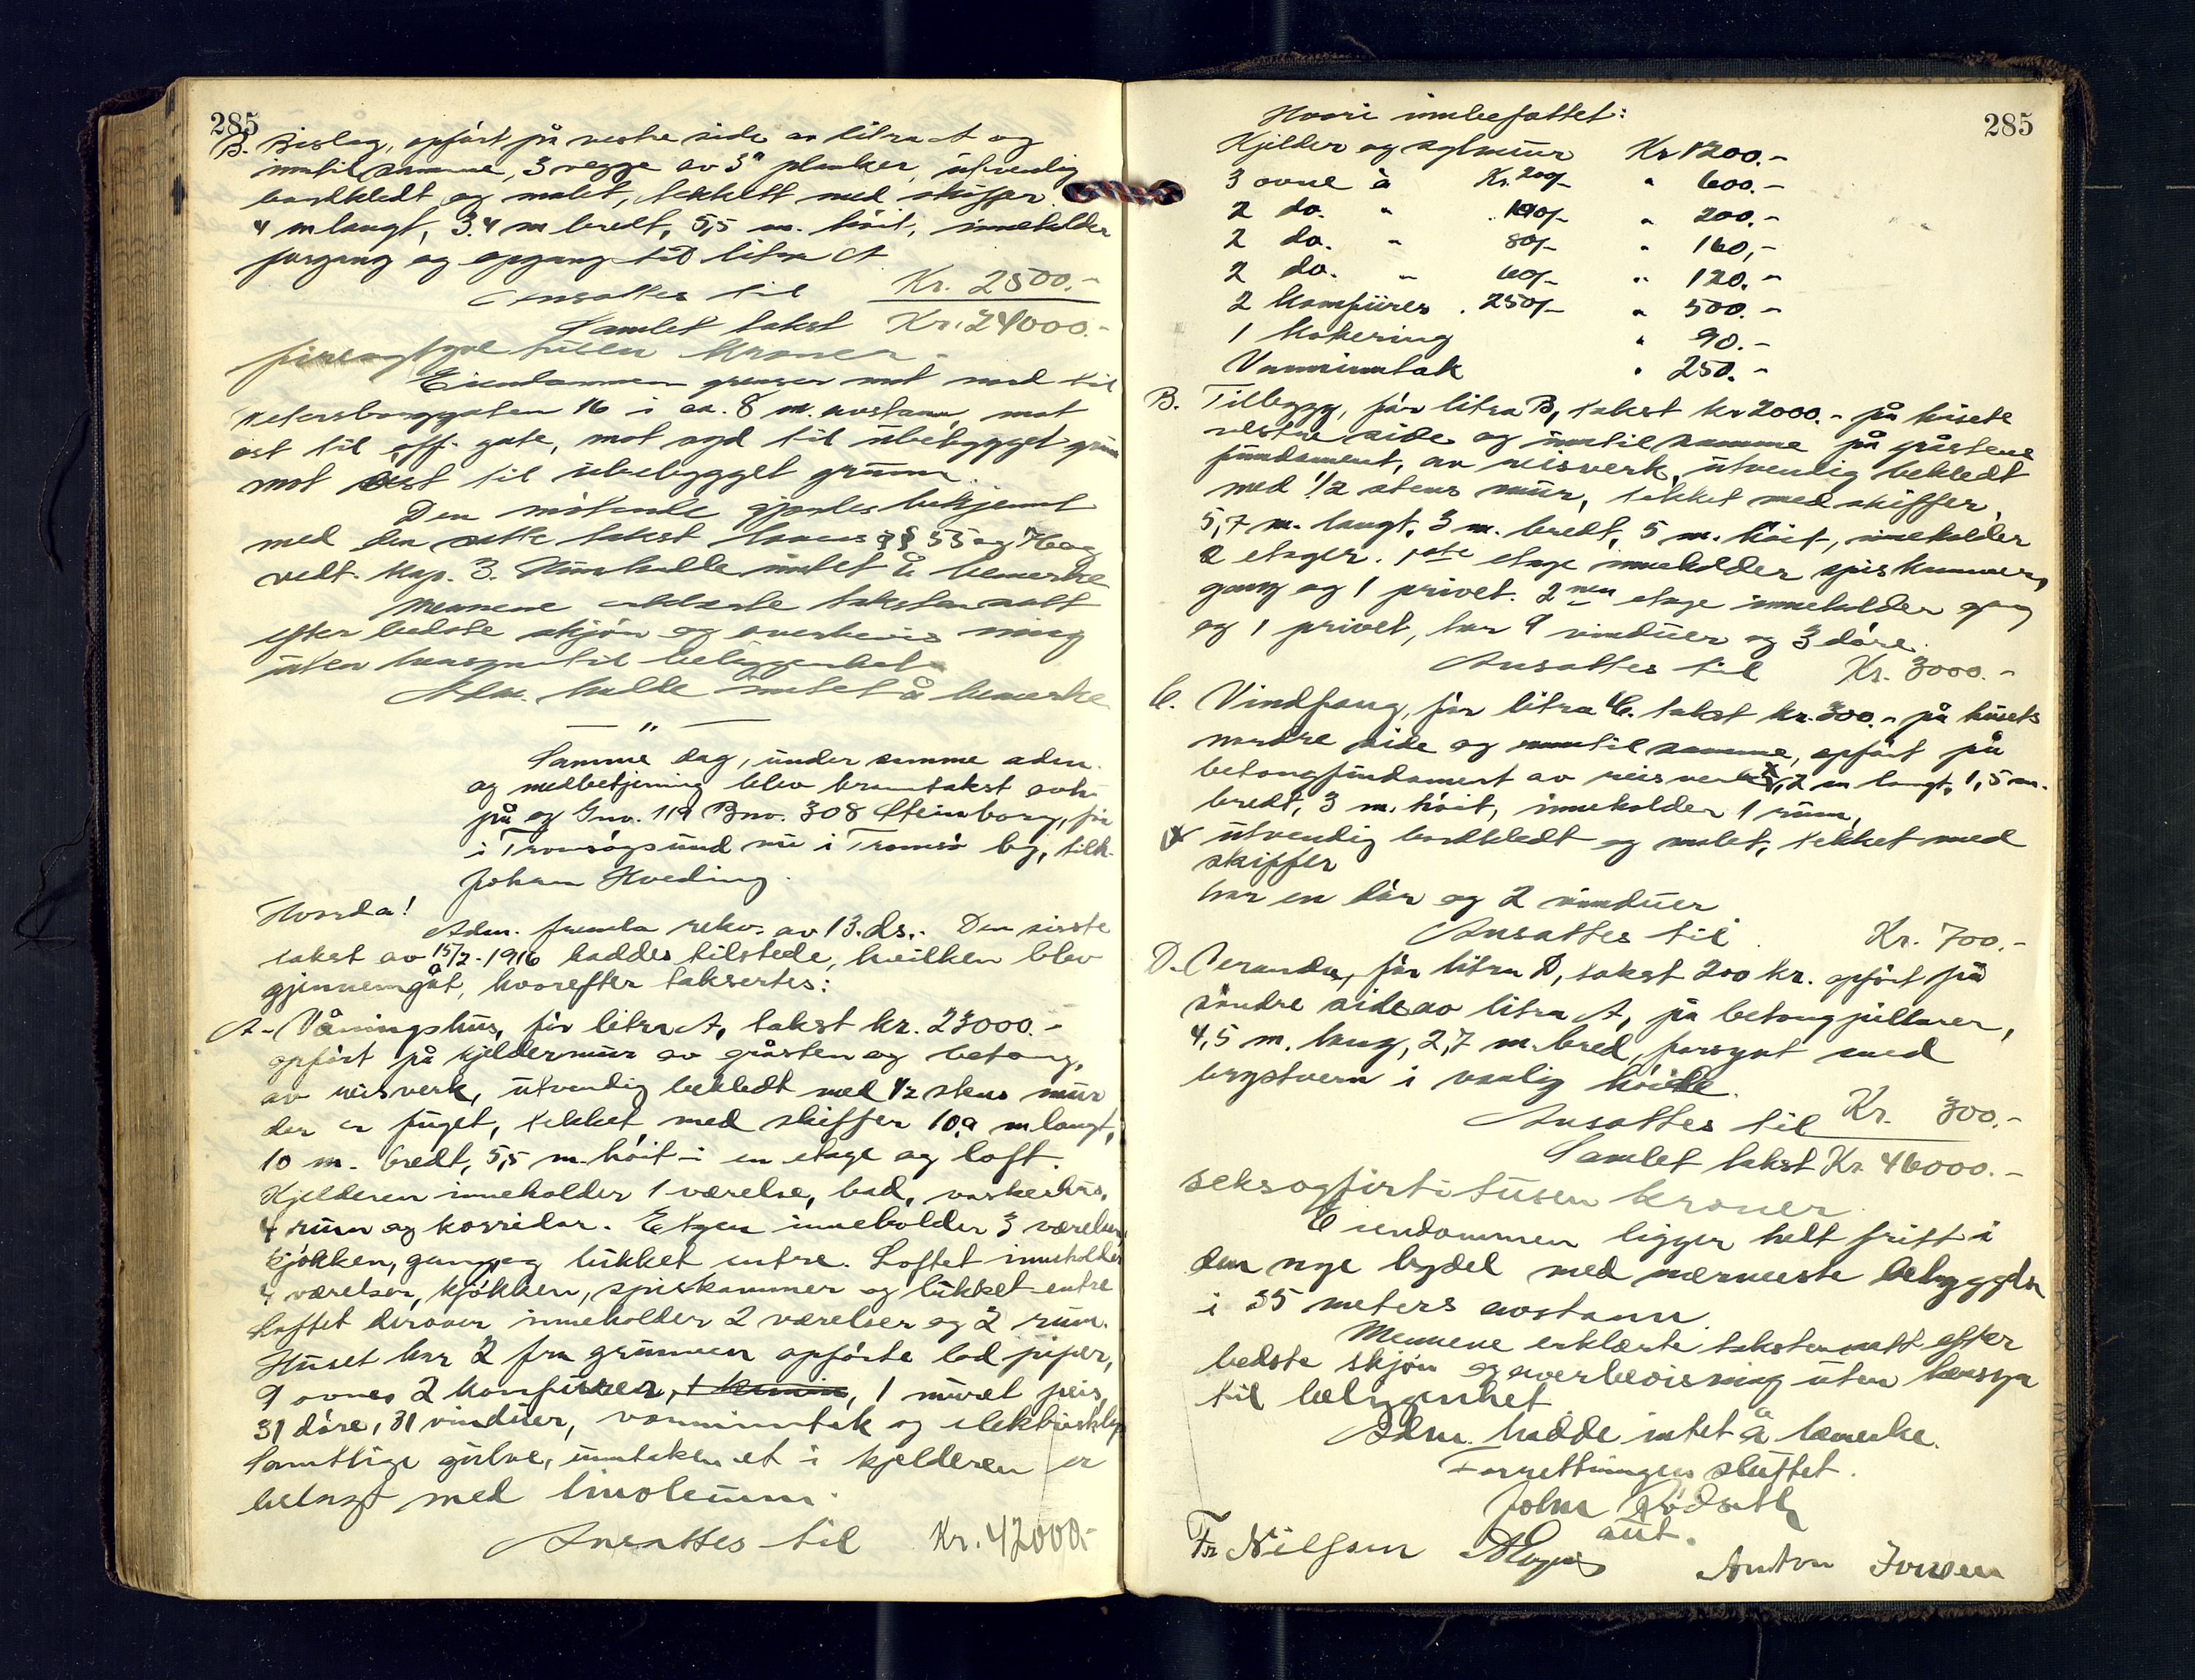 285
B. Bislag, opført på vestre side av litra A og
inntil samme, 3 vegge av 3" planker, utvendig
bordkledt og malet, tekket med skiffer.
4 m langt, 3.4 m bredt, 5,5 m. høit, inneholder
forgang og opgang til litra A
Ansattes til Kr. 2500.-
Samlet takst Kr. 24000.-
fireogtyve tusen kroner.
Eiendommen grenser mot nord til
Petersborggaten 16 i ca. 8 m. avstann, mot
øst til off. gate, mot syd til ubebygget grunn
mot vest til ubebygget grunn.
Den møtende gjordes bekjennt
med den satte takst lovens §§ 55 og 76 og
vedt. kap. 3. Hun hadde intet å bemerke
Mennene erklærte taksten satt
efter bedste skjøn og overbevisning
uten hensyn til beliggenhet
Adm. hadde intet å bemerke
— " —
Samme dag, under samme adm.
og medbetjening blev branntakst avh.
på eg Gnr. 119 Bnr. 308 Steinborg, før
i Tromsøysund nu i Tromsø by, tilh.
Johan Hveding.
Hvorda!
Adm. fremla rekv. av 13. ds. Den sisste
takst av 15/2-1916 haddes tilstede, hvilken blev
gjennemgåt, hvorefter taksertes:
A- Våningshus, før litra A, takst kr. 23000.-
opført på kjeldermur av gråsten og betong,
av reisverk, utvendig bekledt med 1/2 stens mur
der er fuget, tekket med skiffer 10,9 m langt,
10 m. bredt, 5,5 m. høit i en etage og loft.
Kjelderen inneholder 1 værelse, bad, vaskehus,
4 rum og korridor. Etagen inneholder 3 værelser
kjøkken, gang og lukket entre. Loftet inneholder
4 værelser, kjøkken, spiskammer og lukket entre
Loftet derover inneholder 2 værelser og 2 rum.
Huset har 2 fra grunnen opførte lodpiper,
9 ovner 2 komfurer, 1 kamin, 1 muret peis,
31 døre, 31 vinduer, vanninntak og elektrisk lys
Samtlige gulve, unntaken et i kjelderen er
belagt med linoleum.
Ansattes til Kr. 42000.-
285
Hvori innbefattet:
Kjelder og sylmur Kr 1200.-
3 ovne à Kr. 200/- " 600.-
2 do. " 100/- " 200.-
2 do. " 80/- " 160,-
2 do. " 60/- " 120.-
2 komfures . 250/- " 500.-
1 kokering " 90.-
Vanninntak " 250.-
B. Tilbygg, før litra B, takst kr 2000.- på husets
vestre side og inntil samme på gråstens
fundament, av reisverk, utvendig bekledt
med 1/2 stens mur, tekket med skiffer,
5,7 m. langt, 3 m. bredt, 5 m. høit, inneholder
2 etager. 1ste etage inneholder spiskammer,
gang og 1 privet. 2nen etage inneholder gang
og 1 privet, har 9 vinduer og 3 døre.
Ansattes til Kr. 3000.-
C. Vindfang, før litra C. takst kr. 300.- på husets
nordre side og inntil samme, opført på
betongfundament av reisverk x, 2 m langt, 1,5 m.
bredt, 3 m. høit, inneholder 1 rum,
x utvendig bordkledt og malet, tekket med
skiffer
har en dør og 2 vinduer
Ansattes til Kr. 700.-
D. Veranda, før litra D, takst 200 kr. opført på
søndre side av litra A, på betongpillarer,
4,5 m. lang, 2,7 m. bred, forsynt med
brystvern i vanlig høide.
Ansattes til Kr. 300.-
Samlet takst Kr 46000.-
seksogførti tusen kroner.
Eiendommen ligger helt fritt i
den nye bydel med nærmeste bebyggelse
i 35 meters avstann.
Mennene erklærte taksten satt efter
bedste skjøn og overbevisning uten hensyn
til belig­genhet
Adm. hadde intet å bemerke.
Forrettningen sluttet.
John Rødseth
aut.
Fr Nilssen Anton Jensen